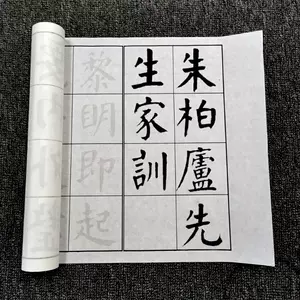 朱柏廬先
生家訓
黎明即起